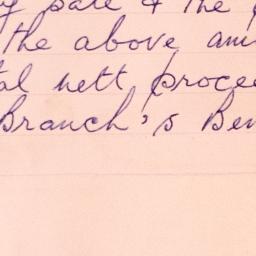 pale & the
the above am
al nett procee
Branch's Ben